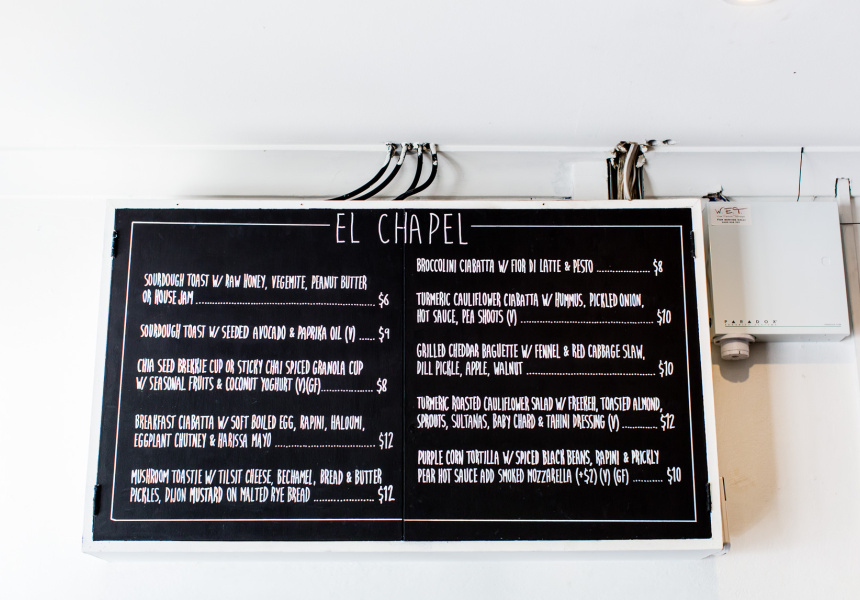 EL CHAPEL
SOURDOUGH TOAST W/ RAW HONEY, VEGEMITE, PEANUT BUTTER
OR HOUSE JAM ........................ $6
SOURDOUGH TOAST W/ SEEDED AVOCADO & PAPRIKA OIL (V) ..... $9
CHIA SEED BREKKIE CUP OR STICKY CHAI SPICED GRANOLA CUP
W/ SEASONAL FRUITS & COCONUT YOGHURT (V)(GF)............... $8
BREAKFAST CIABATTA W/ SOFT BOILED EGG, RAPINI, HALOUMI,
EGGPLANT CHUTNEY & HARISSA MAYO ........................ $12
MUSHROOM TOASTIE W/ TILSIT CHEESE, BECHAMEL, BREAD & BUTTER
PICKLES, DIJON MUSTARD ON MALTED RYE BREAD ................. $12
BROCCOLINI CIABATTA W/ FIOR DI LATTE & PESTO ............... $8
TURMERIC CAULIFLOWER CIABATTA W/ HUMMUS, PICKLED ONION,
HOT SAUCE, PEA SHOOTS (V) ........................ $10
GRILLED CHEDDAR BAGUETTE W/ FENNEL & RED CABBAGE SLAW,
DILL PICKLE, APPLE, WALNUT ........................ $10
TURMERIC ROASTED CAULIFLOWER SALAD W/ FREEKEH, TOASTED ALMOND,
SPROUTS, SULTANAS, BABY CHARD & TAHINI DRESSING (V) .......... $12
PURPLE CORN TORTILLA W/ SPICED BLACK BEANS, RAPINI & PRICKLY
PEAR HOT SAUCE ADD SMOKED MOZZARELLA (+$2) (V) (GF) ......... $10
PARADOX